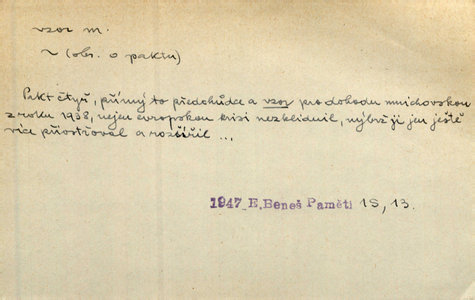 vzor m.
~ (obr. o paktu)
Pakt čtyř, přímý to předchůdce a vzor pro dohodu mnichovskou
z roku 1938, nejen evropskou krisi nezklidnil, nýbrž ji jen ještě
více přiostřoval a rozšířil ...
1947 E. Beneš Paměti 1S, 13.